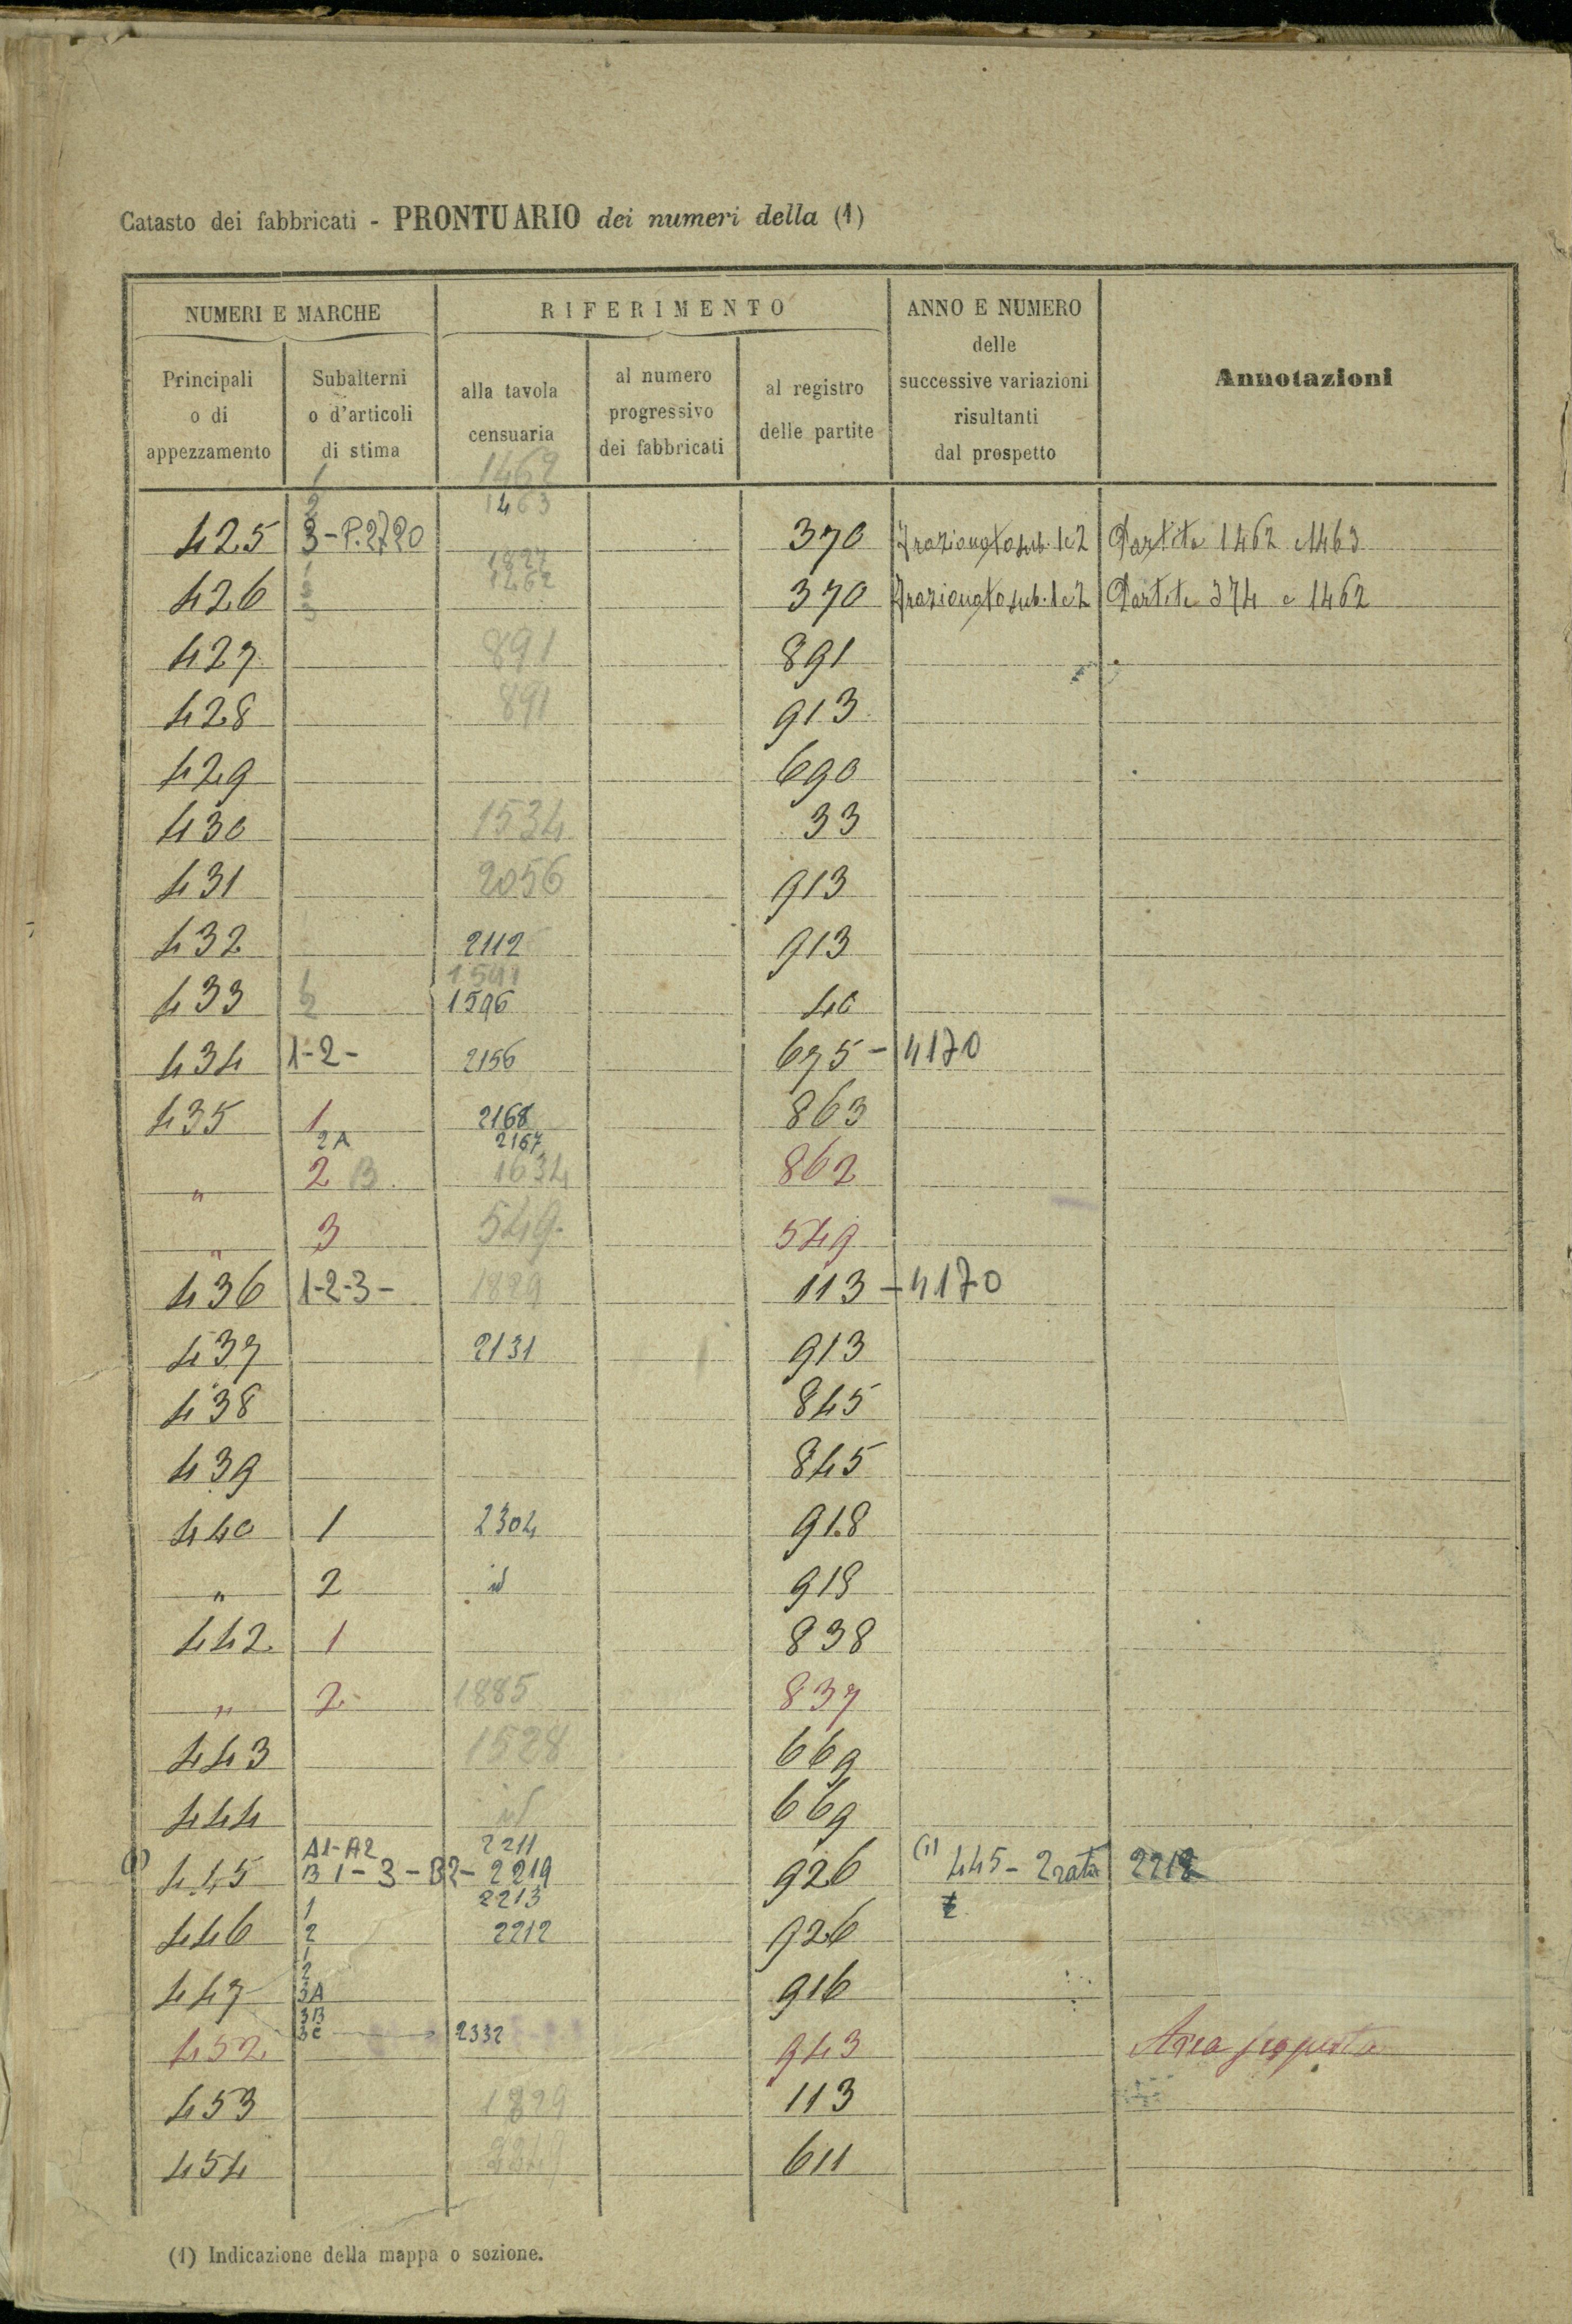 Catasto dei fabbricati - PRONTUARIO dei numeri della (1)
NUMERI E MARCHE
RIFERIMENTO
ANNO E NUMERO
delle
successive variazioni
risultanti
dal prospetto
Annotazioni
Principali
o di
appezzamento
Subalterni
o d'articoli
di stima
alla tavola
censuaria
al numero
progressivo
dei fabbricati
al registro
delle partite
1 1462
2 1463
425 3-P.2720 370 Frazionato sub. 1 e 2 Partite 1462 e 1463
1827
426 1462 370 Frazionato sub. 1 e 2 Partite 374 e 1462
427 891 891
428 891 913
429 690
430 1534 33
431 2056 913
432 2112 913
1 1591
433 2 1596 40
434 1-2- 2156 675 - 4170
435 1 2168 863
2A 2167
" 2 B 1634 862
" 3 549 549
436 1-2-3- 1829 113 - 4170
437 2131 913
438 845
439 845
440 1 2304 918
" 2 id 918
442 1 838
" 2 1885 837
443 1528 669
444 id 669
A1-A2 2211
(1) 445 B1-3-B2- 2219 926 (1) 445 - 2 rata 2212
1 2213
446 2 2212 926
1
2
447 3A 916
3B
3C 2332
452 943 Area
453 1829 113
454 611
(1) Indicazione della mappa o sezione.